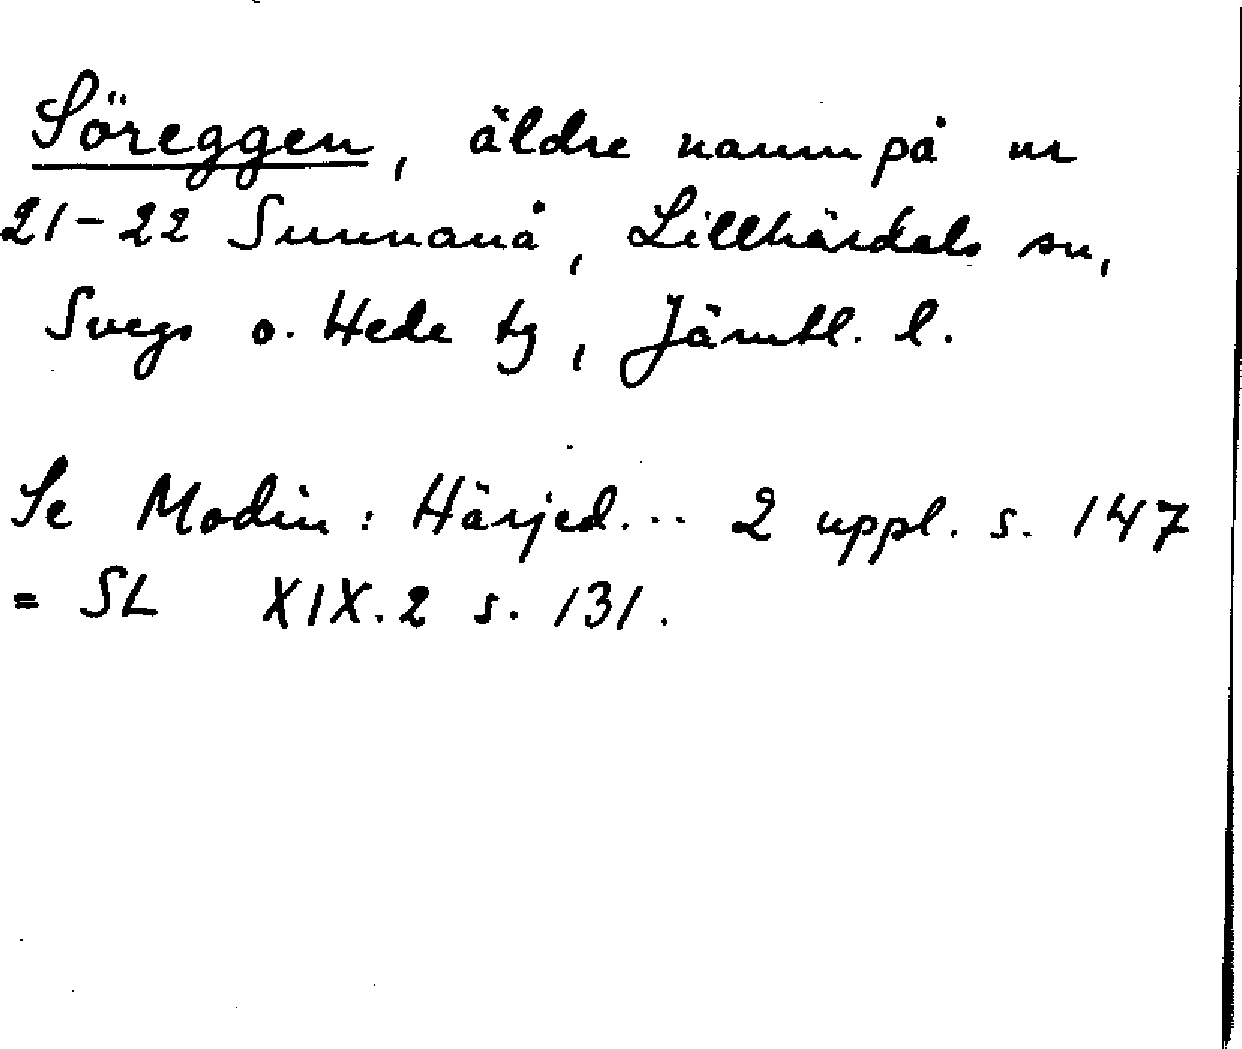 Söreggen, äldre namn på nr
21-22 Sunnanå, Lillhärdals sn,
Svegs o. Hede tg, Jämtl. l.
Se Modin: Härjed... 2 uppl. s. 147
= SL XIX.2 s. 131.